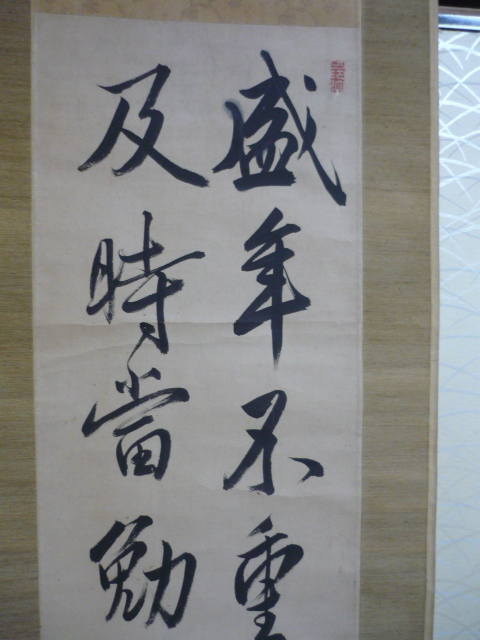 盛年不重
及時當勉